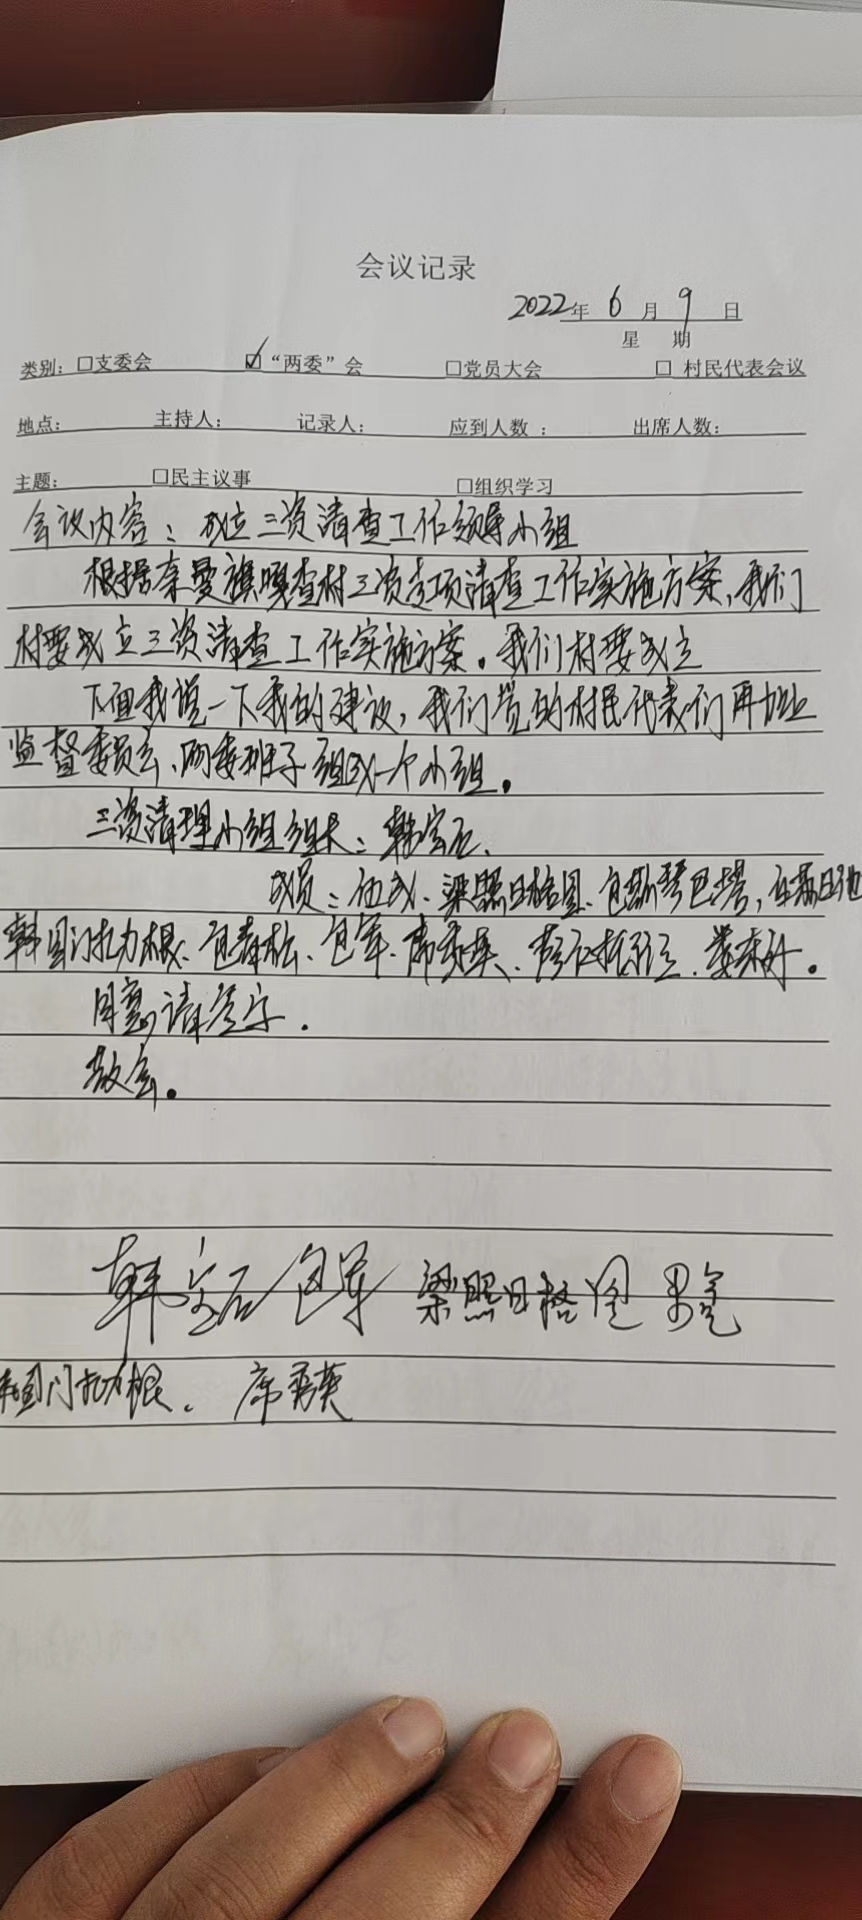 会议记录
2022年 6 月 9 日
星 期
类别：□支委会 ☑“两委”会 □党员大会 □ 村民代表会议
地点： 主持人： 记录人： 应到人数 ： 出席人数：
主题： □民主议事 □组织学习
会议内容：成立三资清查工作领导小组
根据奈曼旗嘎查村三资专项清查工作实施方案，我们
村要成立三资清查工作实施方案。我们村要成立
下面我说一下我的建议，我们党的村民代表们再加上
监督委员会、两委班子组成一个小组。
三资清理小组组长：韩宝石、
成员： 梁照日格图、
韩图门扎力根、包春松、包军、席秀英、
同意请签字.
散会。
韩宝石 包军 梁照日格图
韩图门扎力根、席秀英